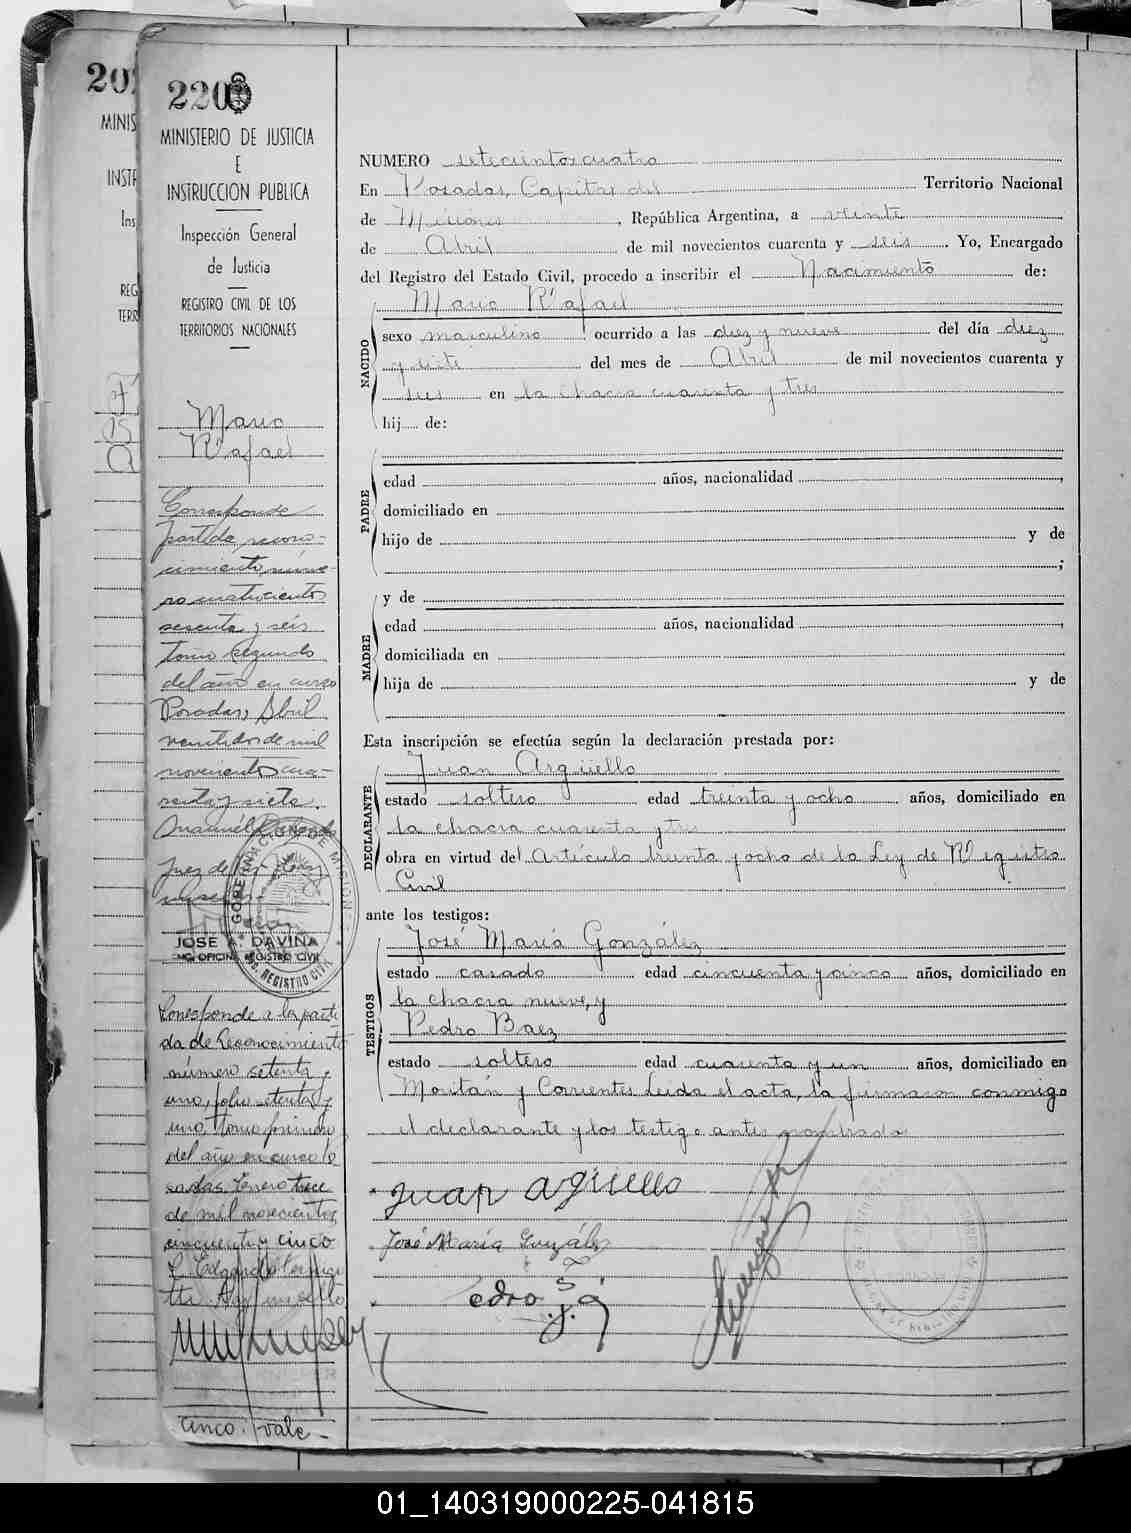 202
MINIS
INSTR
Ins
REG
TERR
220
MINISTERIO DE JUSTICIA
E
INSTRUCCION PUBLICA
Inspección General
de Justicia
REGISTRO CIVIL DE LOS
TERRITORIOS NACIONALES
Mario
Rafael
Corresponde
partida recono-
cimiento núme-
ro cuatrocientos
sesenta y seis
tomo segundo
del año en curso
Posadas, Abril
veintidos de mil
novecientos cua-
renta y siete.
Manuel
Juez de
JOSE A. DAVIÑA
OFICINA REGISTRO CIVIL
GOBERNACION DE MISIONES
REGISTRO CIVIL
Corresponde a la parti
da de Reconocimiento
número setenta y
uno, folio setenta y
uno, tomo primero
del año en curso Po
sadas, Enero trece
de mil novecientos
cincuenta y cinco
cinco: vale -
NUMERO setecientos cuatro
En Posadas, Capital del Territorio Nacional
de Misiones, República Argentina, a veinte
de Abril de mil novecientos cuarenta y seis. Yo, Encargado
del Registro del Estado Civil, procedo a inscribir el Nacimiento de:
Mario Rafael
NACIDO
sexo masculino ocurrido a las diez y nueve del día diez
y siete del mes de Abril de mil novecientos cuarenta y
seis en la chacra cuarenta y tres
hij de:
PADRE
edad años, nacionalidad ,
domiciliado en
hijo de y de
;
MADRE
y de
edad años, nacionalidad ,
domiciliada en
hija de y de
Esta inscripción se efectúa según la declaración prestada por:
DECLARANTE
Juan Argüello
estado soltero edad treinta y ocho años, domiciliado en
la chacra cuarenta y tres
obra en virtud del Artículo treinta y ocho de la Ley de Registro
Civil
ante los testigos:
TESTIGOS
José María González
estado casado edad cincuenta y cinco años, domiciliado en
la chacra nueve, y
Pedro Baez
estado soltero edad cuarenta y un años, domiciliado en
Moritán y Corrientes Leida el acta, la firmaron conmigo
el declarante y los testigo antes nombrados
Juan Agüello
José María Gonzáles
edro
01_140319000225-041815